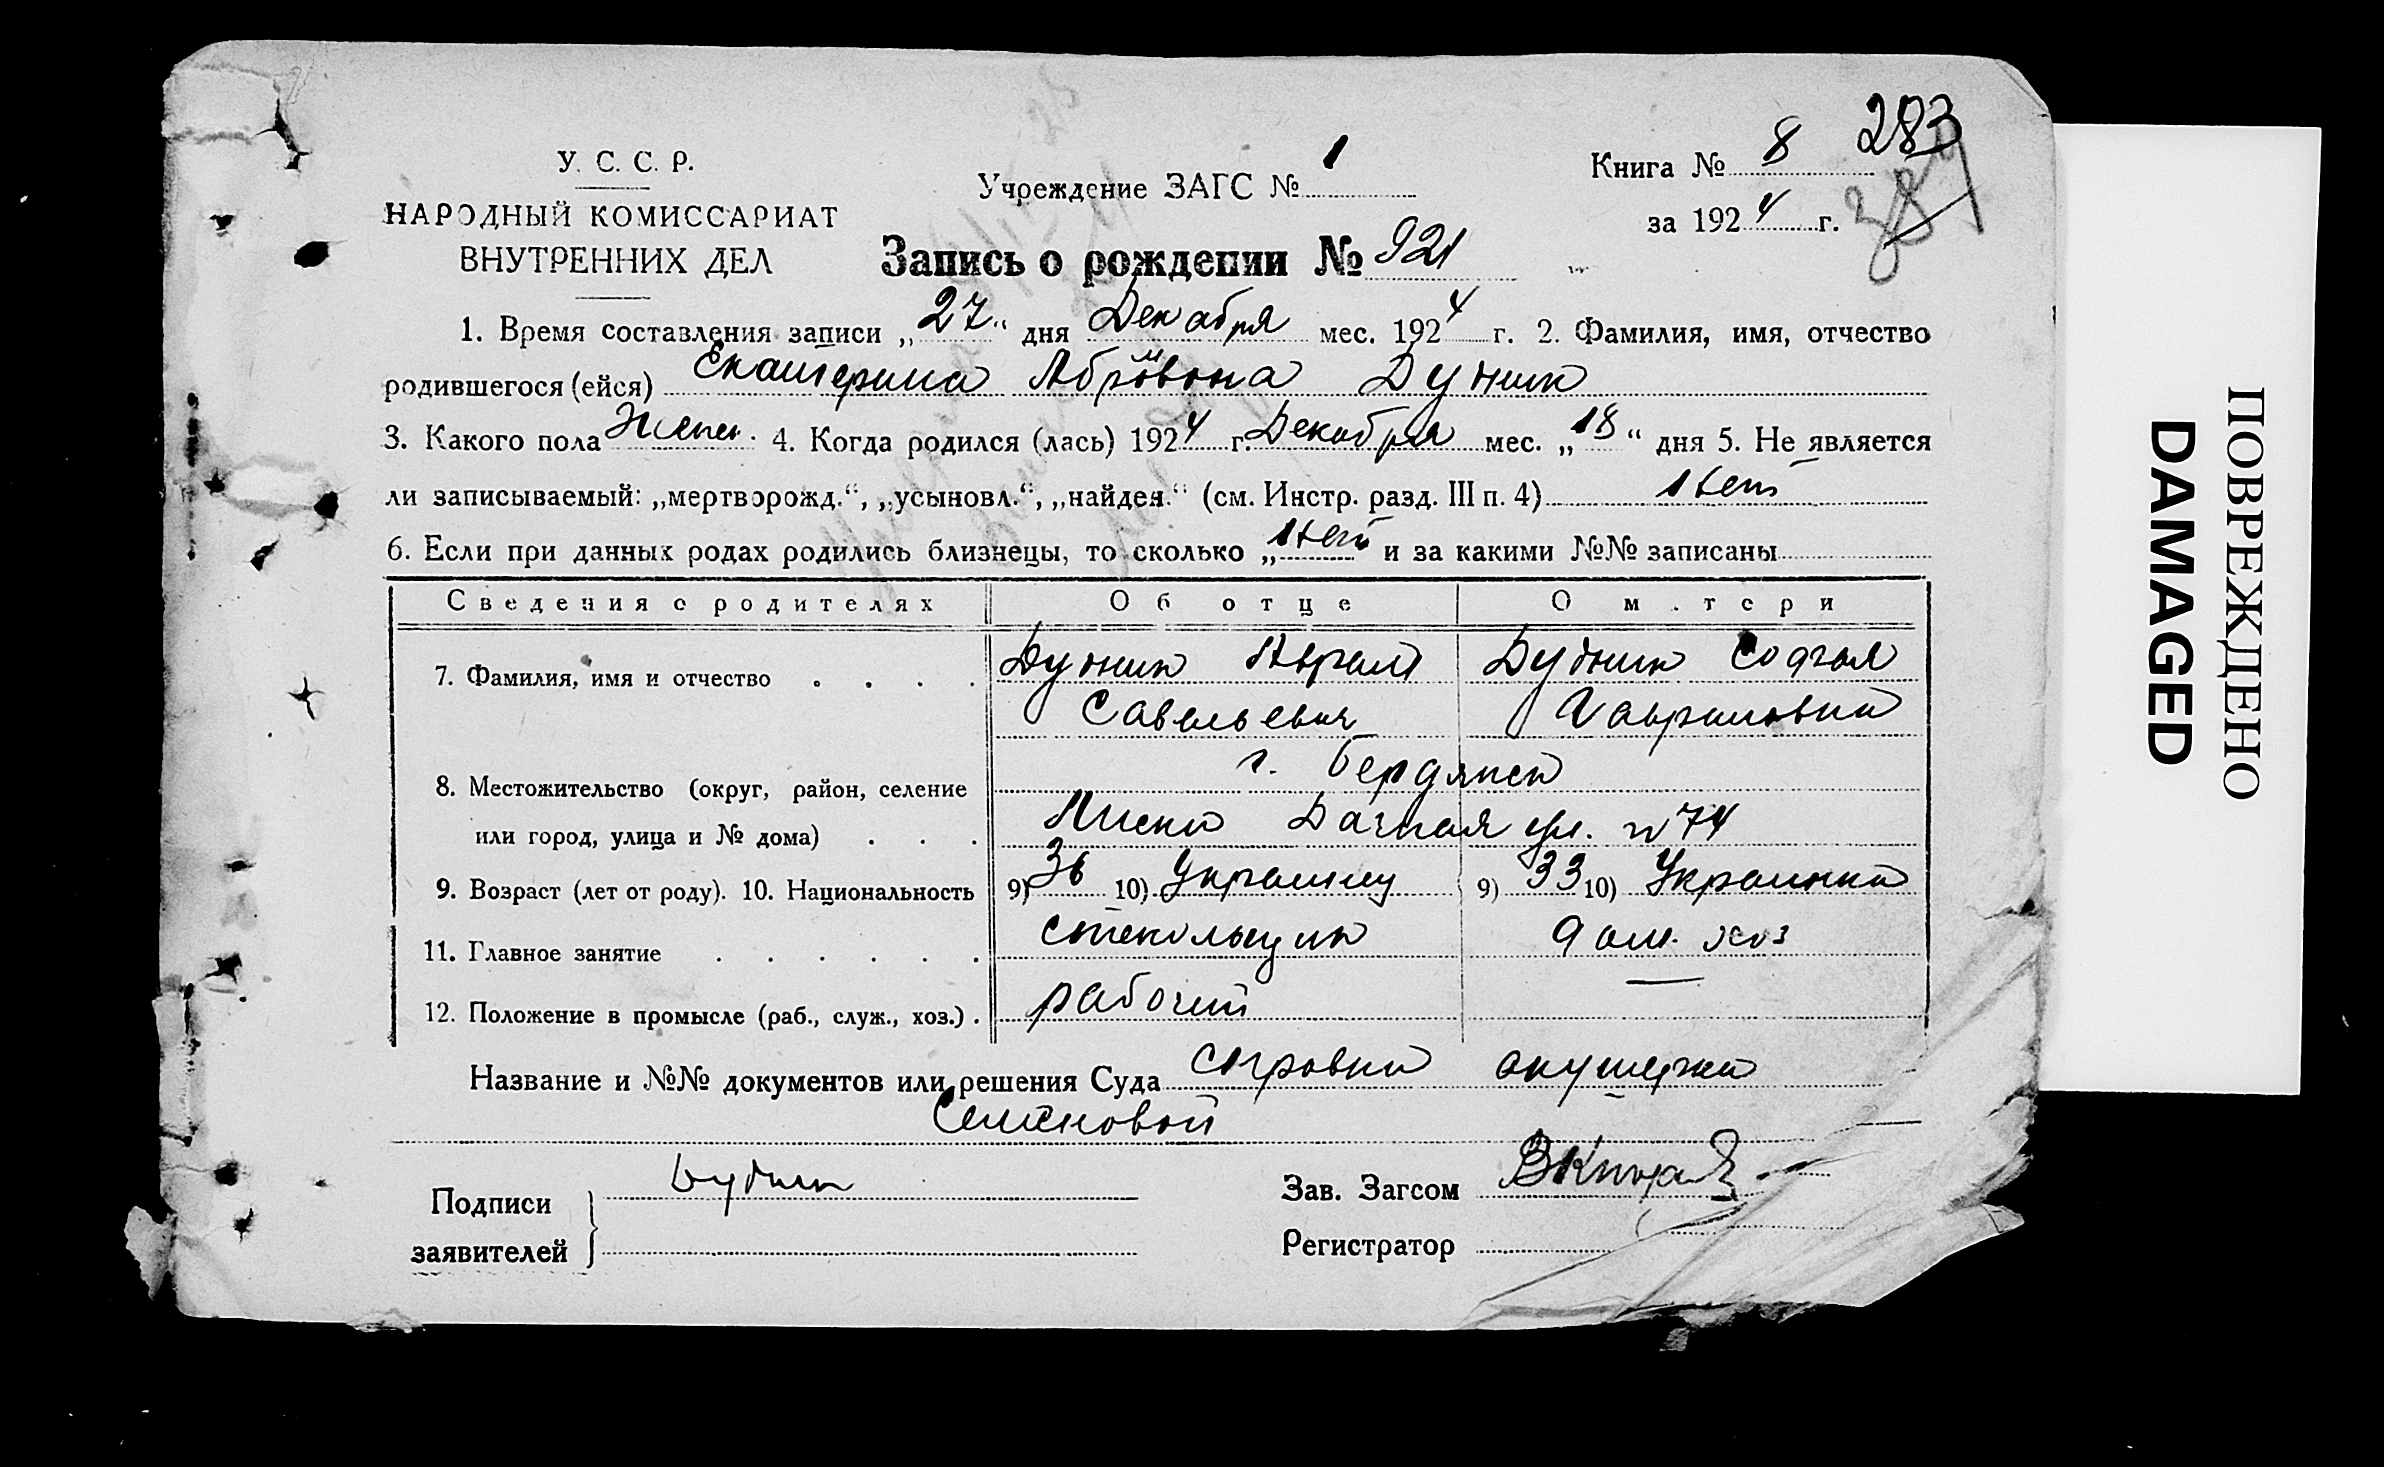 283
У. С. С. Р.
Учреждение ЗАГС № 1
Книга № 8
НАРОДНЫЙ КОМИССАРИАТ
ВНУТРЕННИХ ДЕЛ
за 1924 г.
Запись о рождении № 921
1. Время составления записи „27“ дня Декабря мес. 1924 г. 2. Фамилия, имя, отчество
родившегося (ейся) Екатерина Дудник
3. Какого пола Женск. 4. Когда родился (лась) 1924 г. Декабря мес. „18“ дня 5. Не является
ли записываемый: „мертворожд.“, „усыновл.“, „найден.“ (см. Инстр. разд. III п. 4) Нет
6. Если при данных родах родились близнецы, то сколько „Нет и за какими №№ записаны
Сведения о родителях Об отце О м.тери
7. Фамилия, имя и отчество Дудник Аврам Дудник Софья
Савельевич Гавриловна
г. Бердянск
8. Местожительство (округ, район, селение
или город, улица и № дома) Лиски Дачная ул. № 74
9. Возраст (лет от роду). 10. Национальность 9) 36 10) Украинец 9) 33 10) Украинка
11. Главное занятие стекольщик дом. хоз
12. Положение в промысле (раб., служ., хоз.) рабочий —
Название и №№ документов или решения Суда справка акушерки
Семеновой
Подписи
заявителей
Дудник
Зав. Загсом
Регистратор
ПОВРЕЖДЕНО
DAMAGED